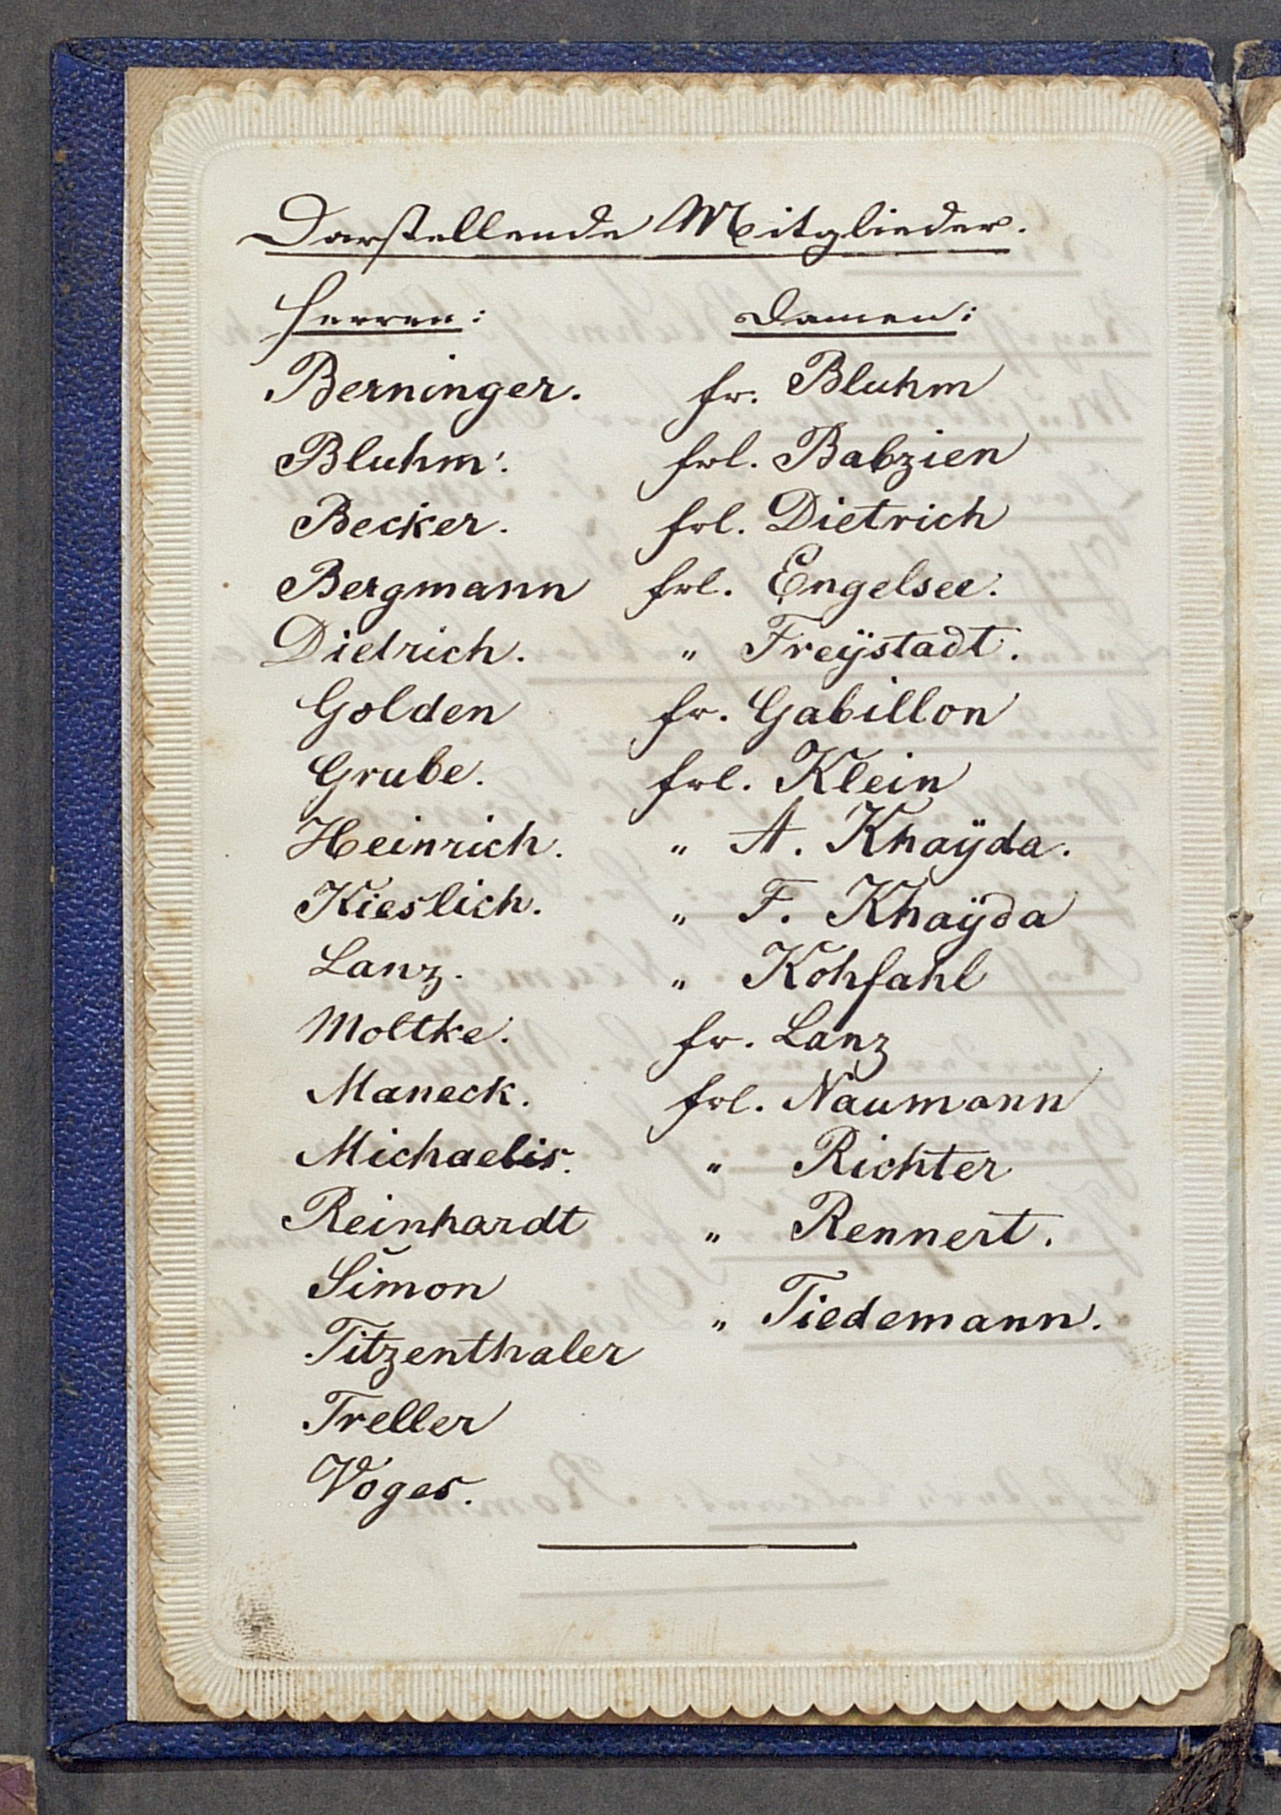 Darstellende Mitglieder.
Herren: Damen:
Berninger. Fr. Bluhm
Bluhm. Frl. Babzien
Becker. Frl. Dietrich
Bergmann Frl. Engelsee.
Dietrich. " Freÿstadt.
Golden Fr. Gabillon
Grube. Frl. Klein
Heinrich. " A. Khaÿda.
Kieslich. " F. Khaÿda
Lanz. " Kohfahl
Moltke. Fr. Lanz
Maneck. Frl. Naumann
Michaelis. " Richter
Reinhardt " Rennert.
Simon
" Tiedemann.
Titzenthaler
Treller
Voges.